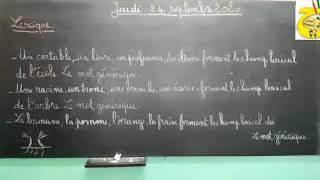 Jeudi 24 septembre 2020
Lexique
_ Un cartable, un livre, un professeur, des élèves forment le champ lexical
de l'école. Le mot générique.
_ Une racine, un tronc, une branche, une écorce: forment le champ lexical
de l'arbre. Le mot générique.
_ La banane, la pomme, l'orange, la fraise forment le champ lexical du
le mot générique.